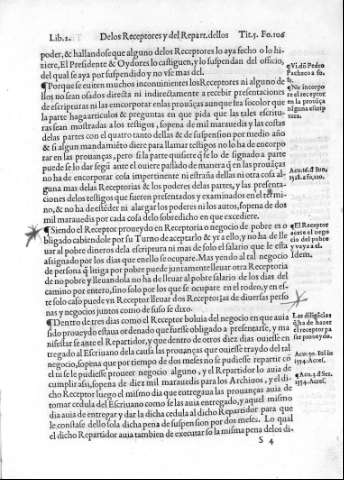 Lib. 2. De los Receptores y del Repart. dellos Tit. 5. Fo. 106
poder, & hallandose que alguno delos Receptores lo aya fecho o hi-
ziere, El Presidente & Oydores lo castiguen, y lo suspendan del officio,
del qual se aya por suspendido y no vse mas del.
¶Porque se euiten muchos inconuinientes los Receptores ni alguno de
llos no sean osados directa ni indirectamente a recebir presentaciones
de escripturas ni las encorporar enlas prouãças aunque sea so color que
la parte haga articulos & preguntas en que pida que las tales escritu-
ras sean mostradas a los testigos, sopena de mil marauedis y las costas
delas partes con el quatro tanto dellas & de suspension por medio año
& si algun mandamiẽto diere para llamar testigos no lo ha de encorpo
rar en las prouanças, pero si la parte quisiere q̃ se lo de signado a parte
puede se lo dar segũ ante el ouiere passado de manera q̃ en las prouãças
no ha de encorporar cosa impertinente ni estraña dellas ni otra cosa al-
guna mas delas Receptorias & los poderes delas partes, y las presenta-
ciones delos testigos que fueren presentados y examinados en el termi-
no, & no ha de estẽder ni alargar los poderes ni los autos, sopena de dos
mil marauedis por cada cosa delo sobredicho en que excediere.
¶Siendo el Receptor proueydo en Receptoria o negocio de pobre es o-
bligado cabiendole por su Turno de aceptarlo & yr a ello, y no ha de lle
uar al pobre dineros dela escriptura ni mas de solo el salario que le esta
assignado por los dias que en ello se ocupare. Mas yendo al tal negocio
de persona q̃ litiga por pobre puede juntamente lleuar otra Receptoria
de no pobre y lleuandola no ha de lleuar al pobre salario de los dias del
camino por entero, sino solo por los que se ocupare en el rodeo, y en es-
te solo caso puede vn Receptor lleuar dos Receptorias de diuersas perso
nas y negocios juntos como de suso se dixo.
¶Dentro de tres dias como el Receptor boluia del negocio en que auia
sido proueydo estaua ordenado que fuesse obligado a presentarse, y ma
nifestarse ante el Repartidor, y que dentro de otros diez dias ouiesse en
tregado al Escriuano dela causa las prouanças que ouiesse traydo del tal
negocio, sopena que por tiempo de dos meses no se pudiesse repartir cõ
el ni se le pudiesse proueer negocio alguno, y el Repartidor lo auia de
cumplir assi, sopena de diez mil marauedis para los Archiuos, y el di-
cho Receptor luego el mismo dia que entregaua las prouanças auia de
tomar cedula del Escriuano como se las auia entregado, y aquel mismo
dia auia de entregar y dar la dicha cedula al dicho Repartidor para que
le constase dello so la dicha pena de suspension por dos meses. Lo qual
el dicho Repartidor auia tambien de executar so la misma pena delos di-
S 4
¶Vi. dõ Pedro
Pacheco a fo.
¶No incorpo
re el receptor
en la prouãça
alguna escrip
tura.
¶El Receptor
acete el nego
cio del pobre
y vaya a el.
Idem.
Las diligẽcias
q̃ha de hazer
el receptor pa
ra